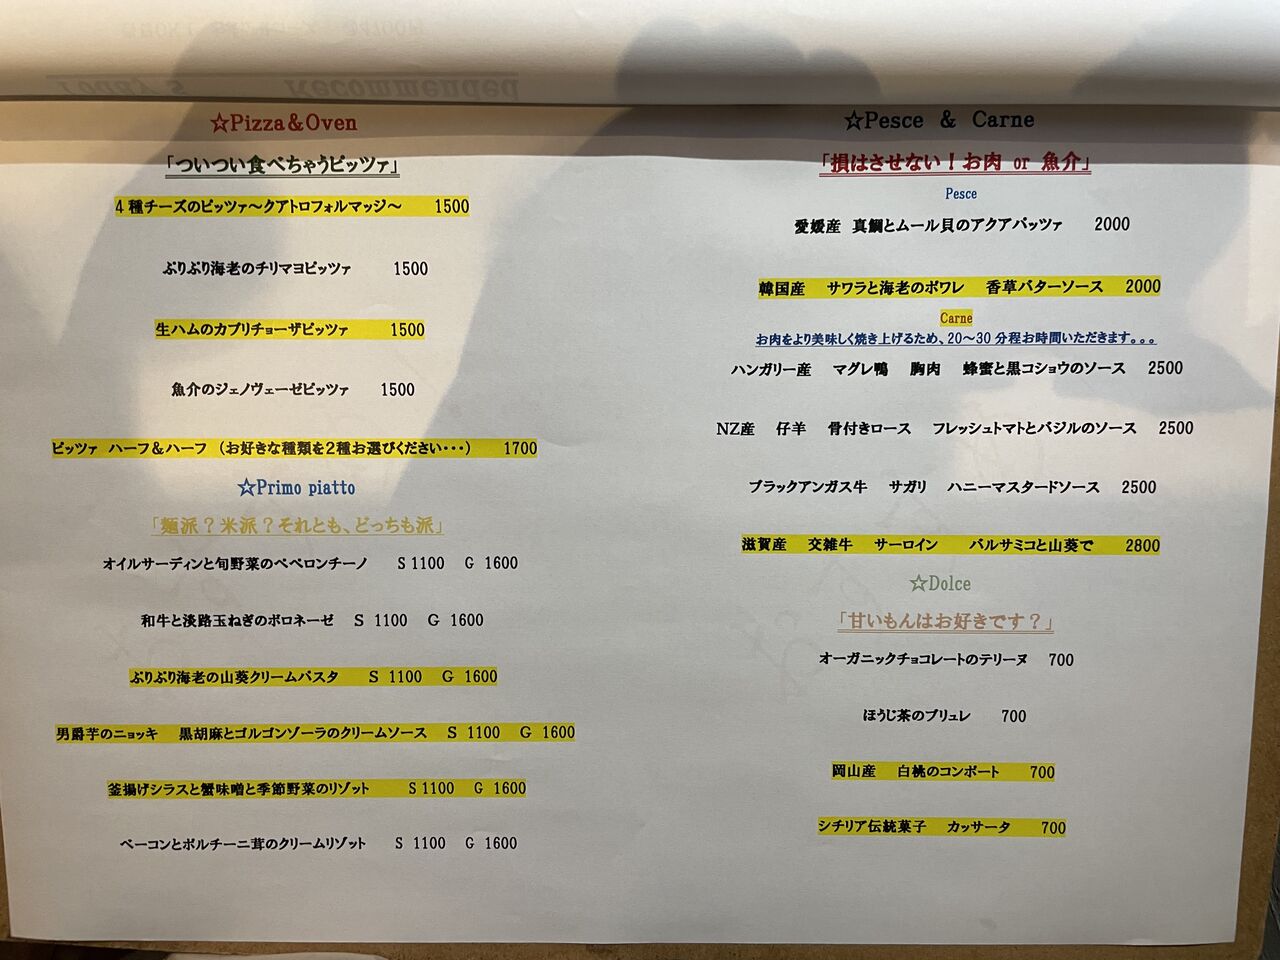 ☆Pizza&Oven
「ついつい食べちゃうピッツァ」
4種チーズのピッツァ～クアトロフォルマッジ～ 1500
ぷりぷり海老のチリマヨピッツァ 1500
生ハムのカプリチョーザピッツァ 1500
魚介のジェノヴェーゼピッツァ 1500
ピッツァ ハーフ&ハーフ (お好きな種類を2種お選びください・・・) 1700
☆Primo piatto
「麺派？米派？それとも、どっちも派」
オイルサーディンと旬野菜のペペロンチーノ S 1100 G 1600
和牛と淡路玉ねぎのボロネーゼ S 1100 G 1600
ぷりぷり海老の山葵クリームパスタ S 1100 G 1600
男爵芋のニョッキ 黒胡麻とゴルゴンゾーラのクリームソース S 1100 G 1600
釜揚げシラスと蟹味噌と季節野菜のリゾット S 1100 G 1600
ベーコンとポルチーニ茸のクリームリゾット S 1100 G 1600
☆Pesce & Carne
「損はさせない！お肉 or 魚介」
Pesce
愛媛産 真鯛とムール貝のアクアパッツァ 2000
韓国産 サワラと海老のポワレ 香草バターソース 2000
Carne
お肉をより美味しく焼き上げるため、20～30分程お時間いただきます。。。
ハンガリー産 マグレ鴨 胸肉 蜂蜜と黒コショウのソース 2500
NZ産 仔羊 骨付きロース フレッシュトマトとバジルのソース 2500
ブラックアンガス牛 サガリ ハニーマスタードソース 2500
滋賀産 交雑牛 サーロイン バルサミコと山葵で 2800
☆Dolce
「甘いもんはお好きです？」
オーガニックチョコレートのテリーヌ 700
ほうじ茶のブリュレ 700
岡山産 白桃のコンポート 700
シチリア伝統菓子 カッサータ 700